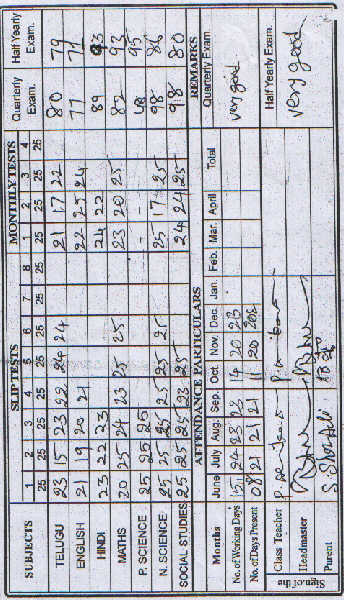 SUBJECTS SLIP TESTS MONTHLY TESTS Quarterly Exam. Half Yearly Exam.
1 2 3 4 5 6 7 8 1 2 3 4
25 25 25 25 25 25 25 25 25 25 25 25
TELUGU 23 15 23 22 24 24 21 17 22 80 79
ENGLISH 21 19 20 21 22 25 24 77 77
HINDI 23 22 23 24 22 89 93
MATHS 20 25 24 23 25 25 23 20 25 82 93
P. SCIENCE 25 25 25 - - 48 95
N. SCIENCE 25 25 25 25 25 25 25 17 25 98 86
SOCIAL STUDIES 25 25 25 23 25 24 24 25 98 80
ATTENDANCE PARTICULARS REMARKS
Months June July Aug. Sep. Oct Nov. Dec. Jan. Feb. Mar. April Total Quarterly Exam
No. of Working Days 15 24 23 23 14 20 23 very good
No. of Days Present 08 21 21 21 11 20
Sign. of the Class Teacher Half Yearly Exam
Headmaster very good
Parent